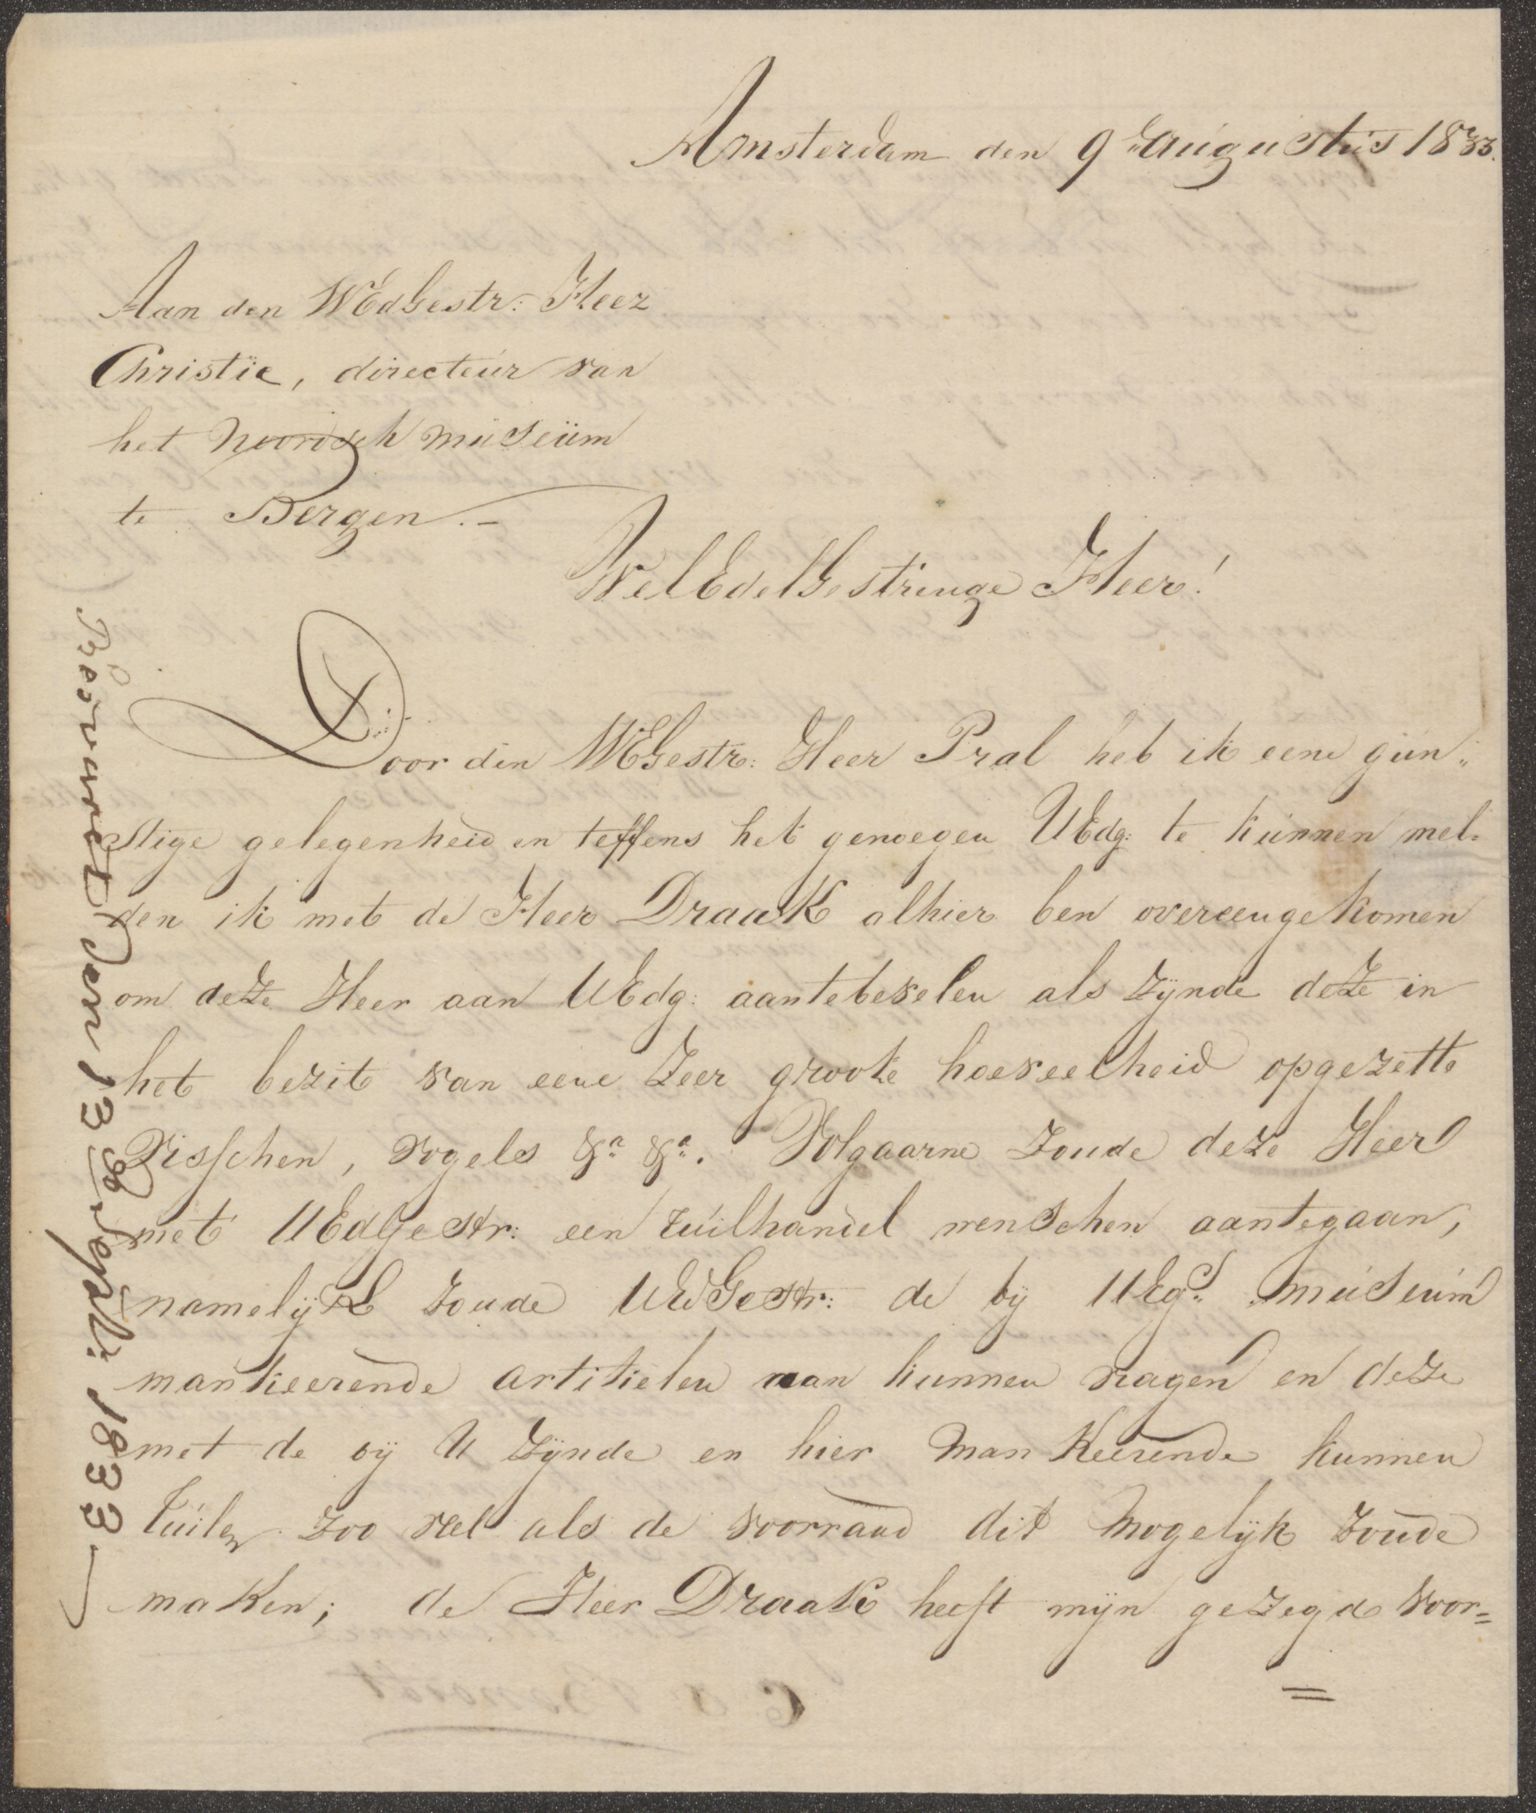 Amsterdam den 9 augustus 1833.
Aan den WEdGestr: Heer
Christïe, directeur van
het Noorisch museüm
te Bergen.–
WelEdelGestrenge Heer!
Door den WEGestr: Heer Pral heb ik eene gun„
stige gelegenheid en teffens het genoegen UEdg: te kunnen mel„
den ik met de Heer Draak alhier ben overeengekomen
om deze Heer aan UEdg: aantebevelen als zÿnde deze in
het bezit van eene zeer groote hoeveelheid opgezette
Visschen, vogels &a &a. Volgaarne zoude deze Heer
met UEdGestr: een ruilhandel wenschen aantegaan,
namelÿk zoude UEdGestr: de bÿ UEgs museum
mankeerende artikelen aan kunnen vragen en deze
met de bÿ U zÿnde en hier mankeerende kunnen
ruilen zoo veel als de voorraad dit mogelÿk zoude
maken; de Heer Draak heeft mÿn gezegd voor=
Besvaret den 13 Septbr: 1833